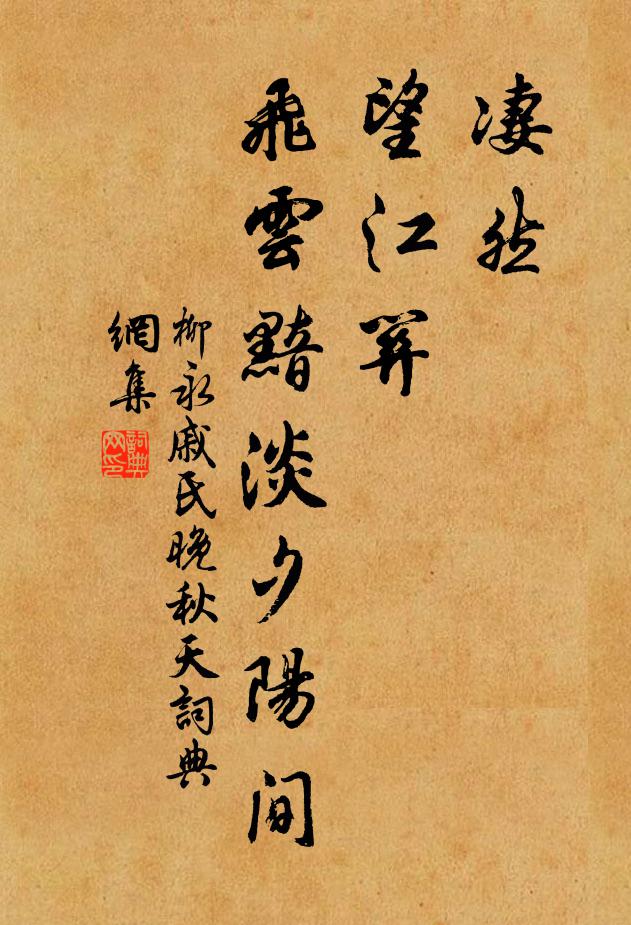 凄然
望江關
飛雲黯淡夕陽間
柳永戚氏晚秋天詞典
網集
詞典
网印